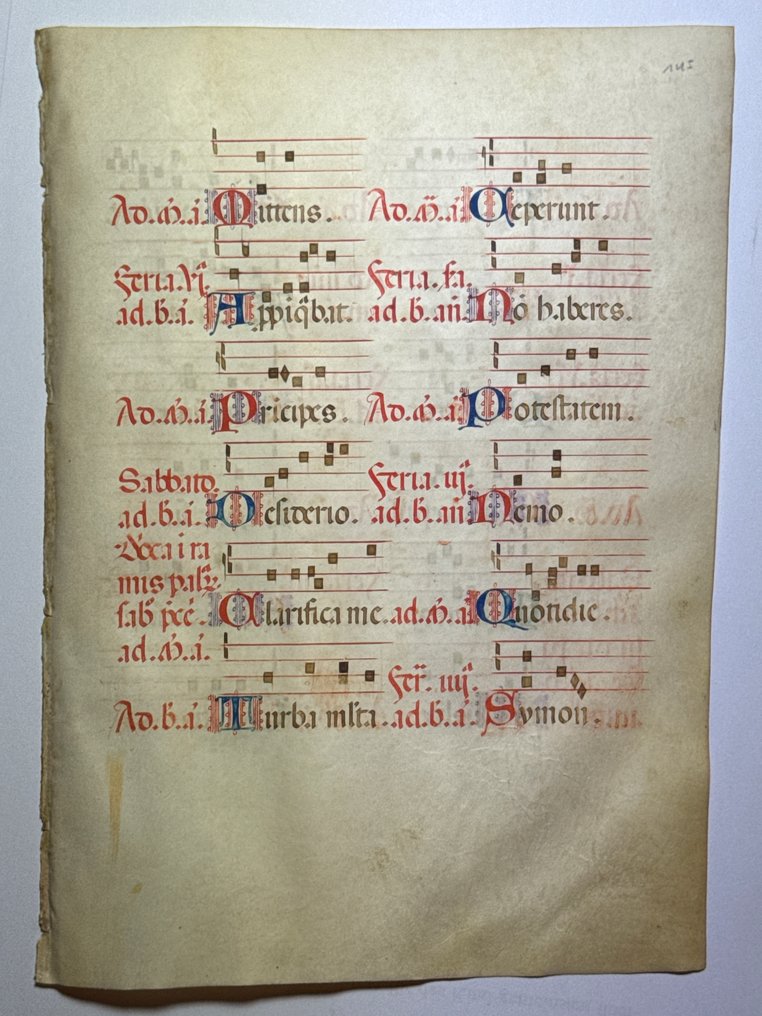 Ad.m.a. Mittens.
Feria.vi.
ad.b.a. Appiqbat.
Ad.m.a. Pricipes.
Sabbato.
ad.b.a. Desiderio.
mis palr.
sab pcé. Clarifica me.
ad.m.a.
Ad.b.a. Turba mlta.
Ad.m.a. Ceperunt.
Feria.
ad.b.an Nō haberes.
Ad.m.a. Potestatem.
Feria.iij.
ad.b.an Nemo.
ad.m.a. Quotidie.
Fer.iiij.
ad.b.a. Symon.